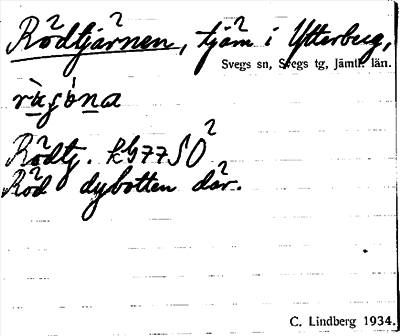 Rödtjärnen, tjärn i Ytterberg,
Svegs sn, Svegs tg, Jämtl. län.
Rödtj. kG77SO
Röd dybotten där.
C. Lindberg 1934.